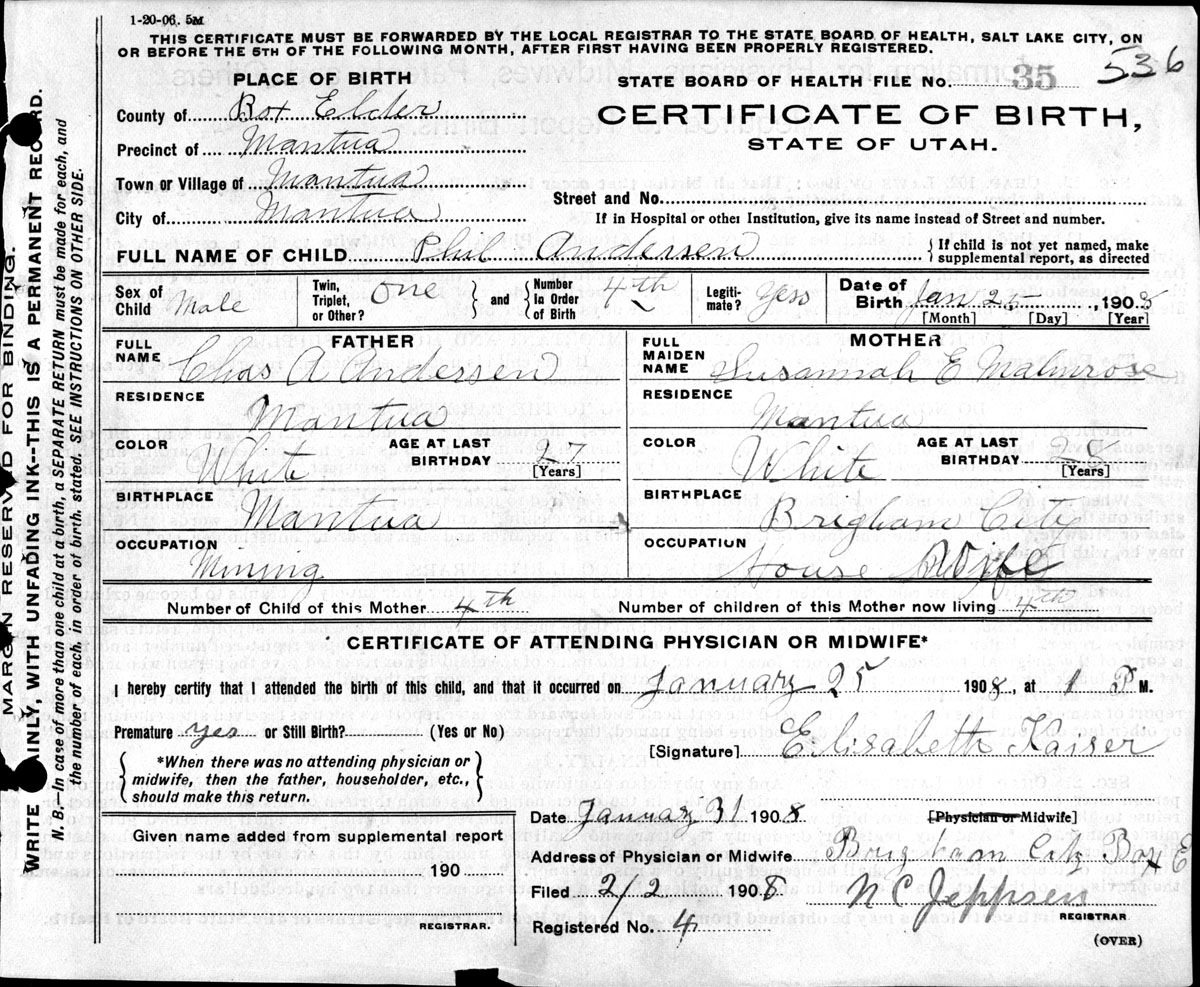 1-20-06. 5M
THIS CERTIFICATE MUST BE FORWARDED BY THE LOCAL REGISTRAR TO THE STATE BOARD OF HEALTH, SALT LAKE CITY, ON
OR BEFORE THE 5TH OF THE FOLLOWING MONTH, AFTER FIRST HAVING BEEN PROPERLY REGISTERED.
536
PLACE OF BIRTH
STATE BOARD OF HEALTH FILE No. 35
County of Box Elder
CERTIFICATE OF BIRTH,
Precinct of Mantua
STATE OF UTAH.
Town or Village of Mantua
Street and No.
City of Mantua
If in Hospital or other Institution, give its name instead of Street and number.
FULL NAME OF CHILD Phil Andersen
If child is not yet named, make
supplemental report, as directed
Sex of Child Male
Twin, Triplet, or Other? One
and
Number in Order of Birth 4th
Legiti-mate? Yess
Date of Birth Jan 25 1908
[Month] [Day] [Year]
FATHER
MOTHER
FULL NAME Chas A Andersen
FULL MAIDEN NAME Susannah E Malmrose
RESIDENCE
Mantua
RESIDENCE
Mantua
COLOR White
AGE AT LAST BIRTHDAY 27 [Years]
COLOR White
AGE AT LAST BIRTHDAY [Years]
BIRTHPLACE
Mantua
BIRTHPLACE
Brigham City
OCCUPATION
Mining
OCCUPATION
House Wife
Number of Child of this Mother 4th
Number of children of this Mother now living 4th
CERTIFICATE OF ATTENDING PHYSICIAN OR MIDWIFE*
I hereby certify that I attended the birth of this child, and that it occurred on January 25 1908, at 1 P M.
Premature yes or Still Birth? (Yes or No)
[Signature] Elisabeth Kaiser
*When there was no attending physician or
midwife, then the father, householder, etc.,
should make this return.
Date January 31 1908
[Physician or Midwife]
Given name added from supplemental report
190
REGISTRAR.
Address of Physician or Midwife Brigham City Box E
Filed 2/2 1908
N C Jeppsen
REGISTRAR
Registered No. 4
(OVER)
MARGIN RESERVED FOR BINDING.
WRITE PLAINLY, WITH UNFADING INK--THIS IS A PERMANENT RECORD.
N. B.--In case of more than one child at a birth, a SEPARATE RETURN must be made for each, and
the number of each, in order of birth, stated. SEE INSTRUCTIONS ON OTHER SIDE.